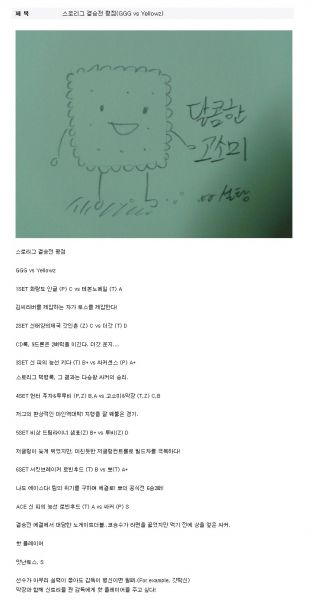 제 목 스로리그 결승전 평점(GGG vs Yellowz)
달콤한
고소미
설탕
스로리그 결승전 평점
GGG vs Yellowz
1SET 화랑도 인글 (P) C vs 태폰노페일 (T) A
김씨리버를 제압하는 자가 토스를 제압한다!
2SET 신태양의제국 갓인흥 (Z) C vs 더갓 (T) D
CD록, 9드론은 2배럭을 이긴다. 더갓 운지....
3SET 신 피의 능선 키다 (T) B+ vs 싸커센스 (P) A+
스토리그 택뱅록, 그 결과는 다승왕 싸커의 승리.
4SET 헌터 주자&투루비 (P,Z) B,A vs 고소미&막장 (T,Z) C,B
저그의 환상적인 마인역대박! 지형을 잘 꿰뚫은 경기.
5SET 비상 드림라이너 샘호(Z) B+ vs 투비(Z) D
저글링이 늦게 뛰었지만, 미친듯한 저글링컨트롤로 빌드차를 극복하다!
6SET 서킷브레이커 로빈후드 (T) B vs 뽀(T) A+
나도 에이스다! 팀의 위기를 구하며 에결로! 뽀의 공식전 6승째!!
ACE 신 피의 능선 로빈후드 (T) A vs 싸커 (P) S
결승전 에결에서 대담한 노게이트더블..코승수가 라면을 끓였지만 먹기 전에 상을 엎은 싸커.
핫 플레이어
맛난토스, S
선수가 아무리 실력이 좋아도 감독이 병신이면 필패.(For example, 갓착신)
막장과 함께 신트리를 짠 감독에게 핫 플레이어를 주고 싶다!